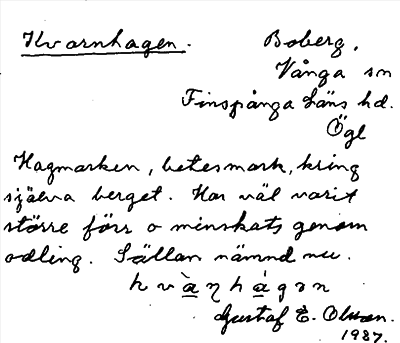 Kvarnhagen. Boberg,
Vånga sn
Finspånga Läns hd.
Ögl
Hagmarken, betesmark, kring
själva berget. Har väl varit
större förr o minskats genom
odling. Sällan nämnd nu.
kvàṇhágən
Gustaf E. Olsson.
1987.